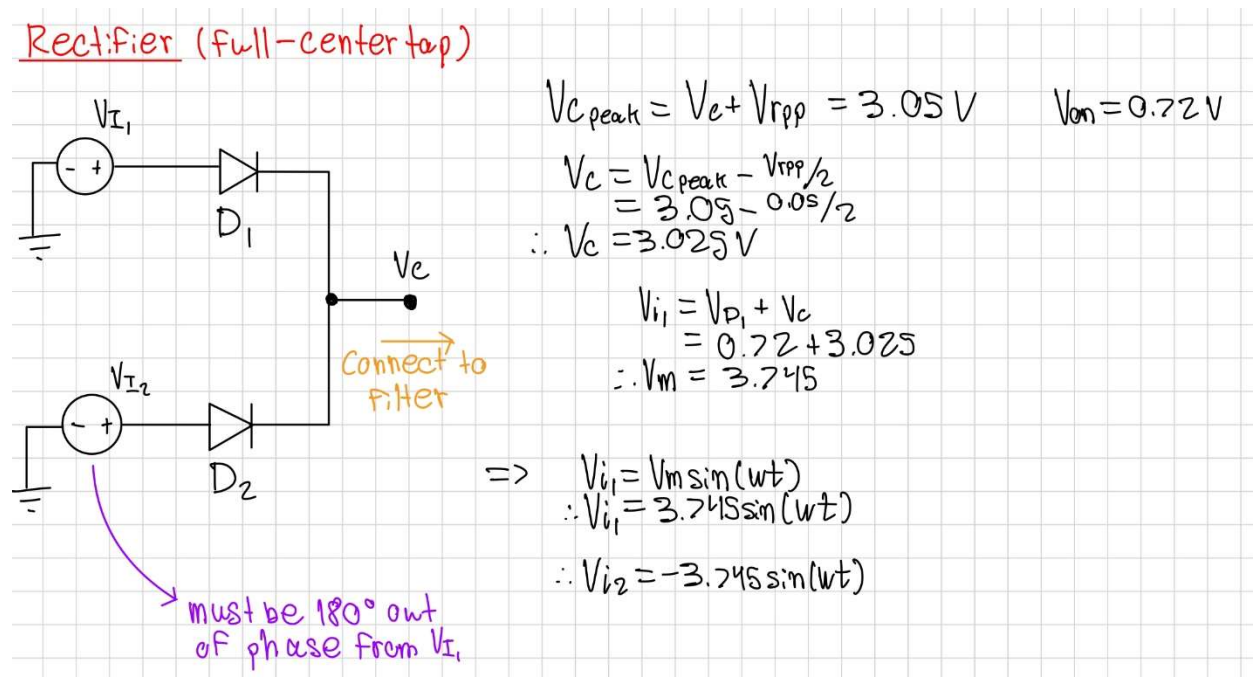 Rectifier (full-center tap)
V_I₁
D₁
Vc
Connect to
Filter
V_I₂
D₂
must be 180° out
of phase from V_I₁
Vc peak = Vc + Vrpp = 3.05 V
Von = 0.72 V
Vc = Vc peak - Vrpp/2
= 3.05 - 0.05/2
∴ Vc = 3.025 V
Vi₁ = V_D₁ + Vc
= 0.72 + 3.025
∴ Vm = 3.745
=> Vi₁ = Vm sin(wt)
∴ Vi₁ = 3.745 sin(wt)
∴ Vi₂ = -3.745 sin(wt)